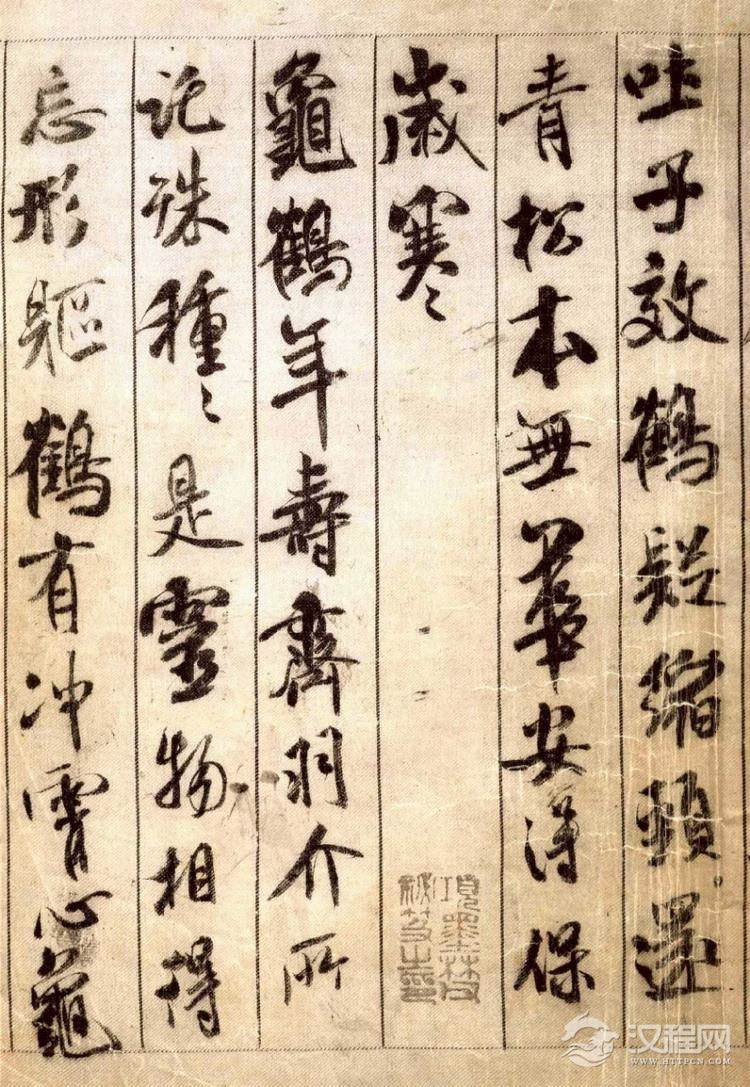 吐子效鶴疑縮頸還
青松本無華安得保
歲寒
龜鶴年壽齊羽介所
託殊種〻是靈物相得
忘形軀鶴有冲霄心龜
項墨林父
祕笈之印
汉程网
WWW.HTTPCN.COM